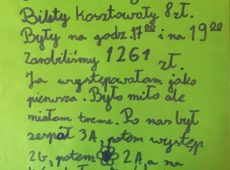 Bilety kosztowały 8 zł.
Były na godz. 17⁰⁰ i na 19⁰⁰
Zarobiliśmy 1261 zł.
Ja występowałam jako
pierwsza. Było miło ale
miałam treme. Po nas był
zespół 3A, potem występ
2b, potem 2A, a na